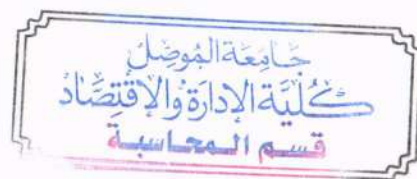 جَامِعَة المُوصِل
كُلِّيَّة الإِدَارَة وَالاقْتِصَاد
قسم المحاسبة